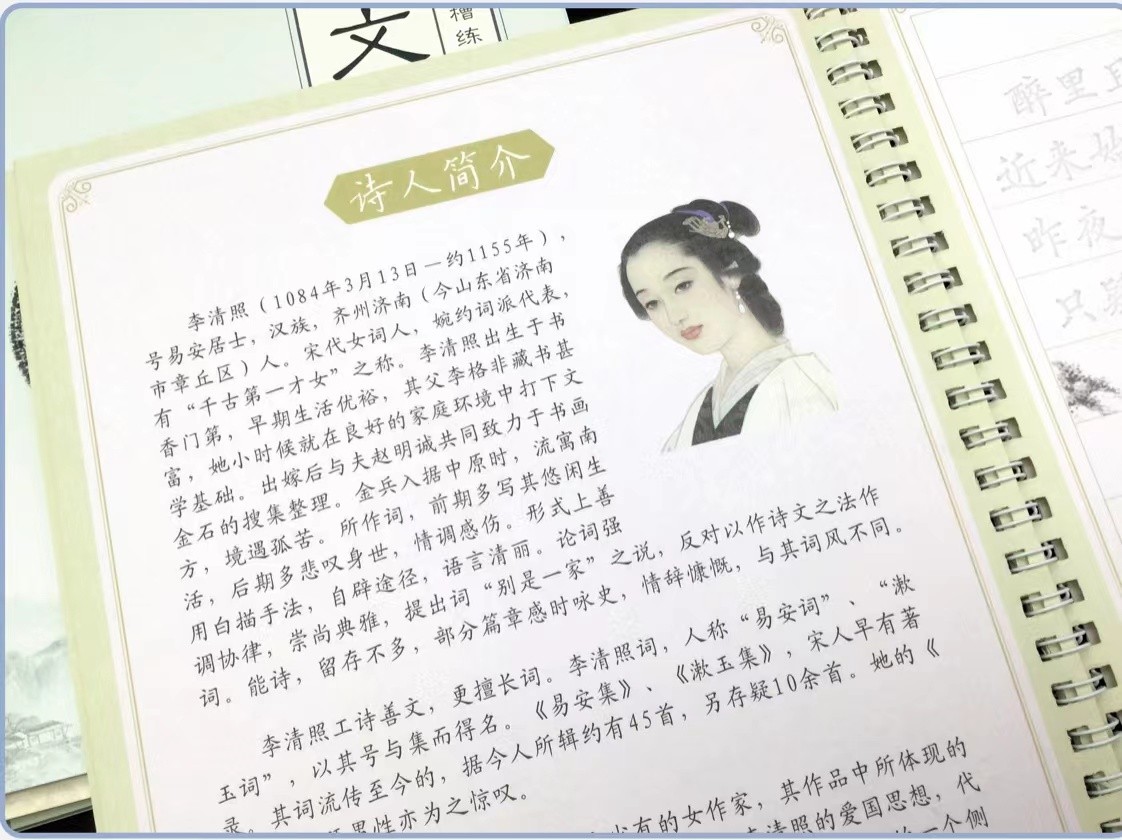 文
槽
练
诗人简介
李清照（1084年3月13日—约1155年），
号易安居士，汉族，齐州济南（今山东省济南
市章丘区）人。宋代女词人，婉约词派代表，
有“千古第一才女”之称。李清照出生于书
香门第，早期生活优裕，其父李格非藏书甚
富，她小时候就在良好的家庭环境中打下文
学基础。出嫁后与夫赵明诚共同致力于书画
金石的搜集整理。金兵入据中原时，流寓南
方，境遇孤苦。所作词，前期多写其悠闲生
活，后期多悲叹身世，情调感伤。形式上善
用白描手法，自辟途径，语言清丽。论词强
调协律，崇尚典雅，提出词“别是一家”之说，反对以作诗文之法作
词。能诗，留存不多，部分篇章感时咏史，情辞慷慨，与其词风不同。
李清照工诗善文，更擅长词。李清照词，人称“易安词”、“漱
玉词”，以其号与集而得名。《易安集》、《漱玉集》，宋人早有著
录。其词流传至今的，据今人所辑约有45首，另存疑10余首。她的《
男性亦为之惊叹。
少有的女作家，其作品中所体现的
清照的爱国思想，代
一个侧
醉里
近来
昨夜
只